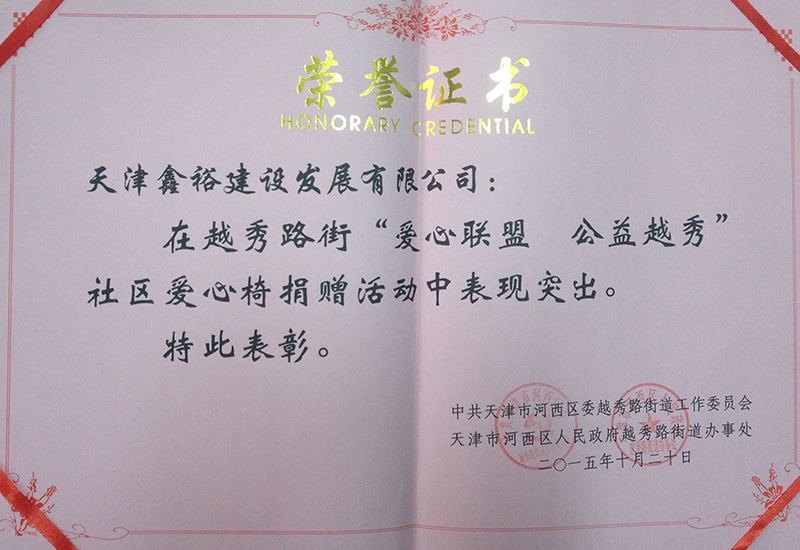 荣誉证书
HONORARY CREDENTIAL
天津鑫裕建设发展有限公司：
在越秀路街“爱心联盟　公益越秀”
社区爱心椅捐赠活动中表现突出。
特此表彰。
中共天津市河西区委越秀路街道工作委员会
天津市河西区人民政府越秀路街道办事处
二〇一五年十月二十日